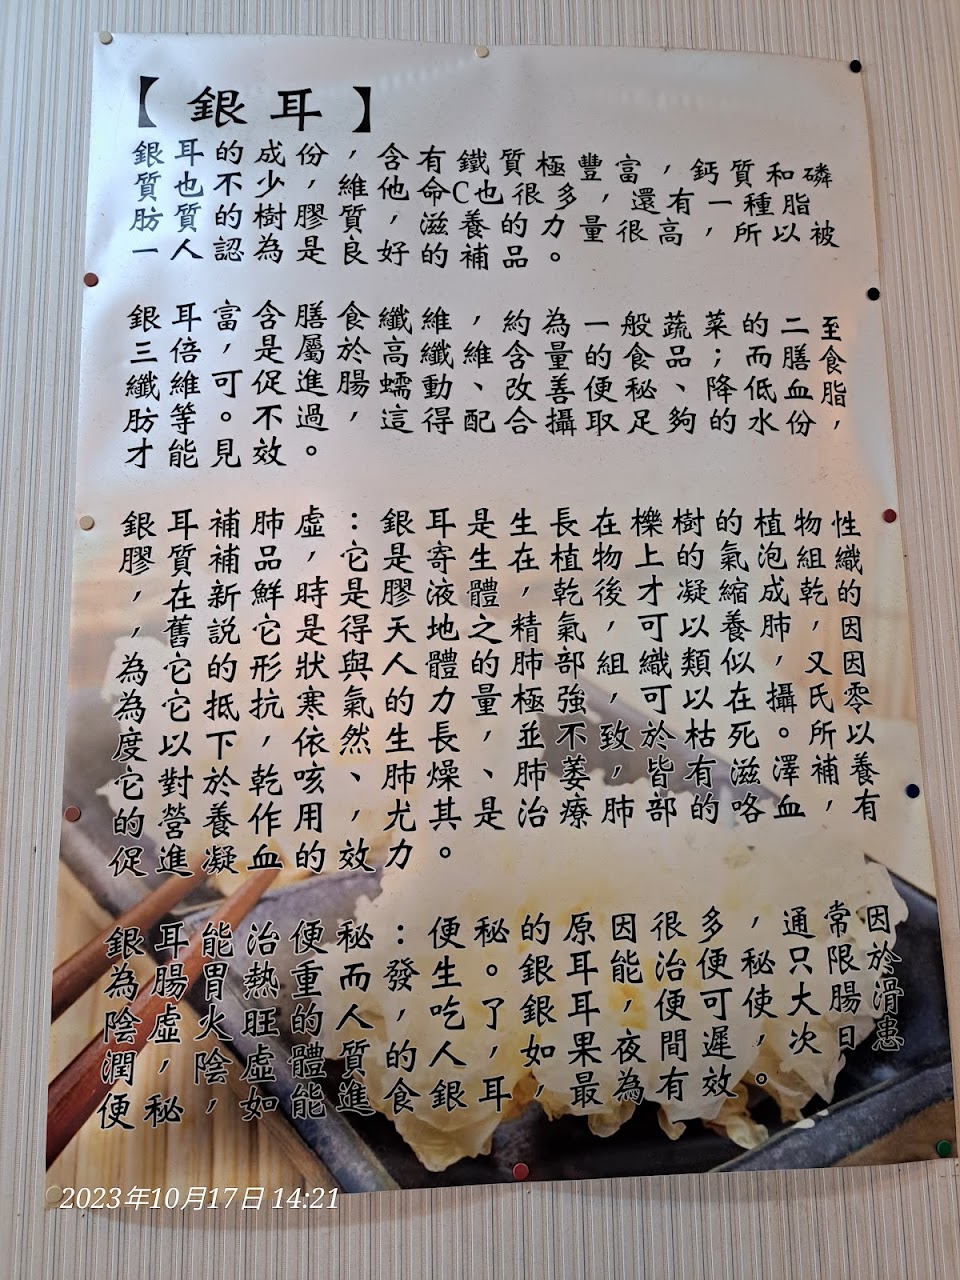 【銀耳】
銀耳的成份，含有鐵質極豐富，鈣質和磷
質也不少，維他命C也很多，還有一種脂
肪質的樹膠質，滋養的力量很高，所以被
一人認為是良好的補品。
銀耳富含膳食纖維，約為一般蔬菜的二至
三倍，是屬於高纖維含量的食品；而膳食
纖維可促進腸蠕動、改善便秘、降低血脂
肪等。不過，這得配合攝取足夠的水份，
才能見效。
銀耳補肺虛：銀耳是生長在櫟樹的植物性
膠質補品，它是寄生在植物上的氣泡組織
，在新鮮時是膠液體，乾後才凝縮成乾的
，舊說它是得天地之精氣，可以養肺，因
為它的形狀與人體的肺部組織類似，又因
為它抵抗寒氣的力量極強，可以在攝氏零
度以下，依然生長，並不致於枯死。所以
它對於乾咳、肺燥、肺萎，皆有滋澤補養
的營養作用，尤其是治療肺部的咯血，有
促進凝血的效力。
銀耳能治便秘：便秘的原因很多，通常因
為腸胃熱重而發生。銀耳能治便秘只限於
陰虛火旺的人，吃了銀耳，便可使大腸滑
潤，陰虛體質的人，如果夜間遲，次日患
便秘，如能進食銀耳，最為有效。
2023年10月17日 14:21